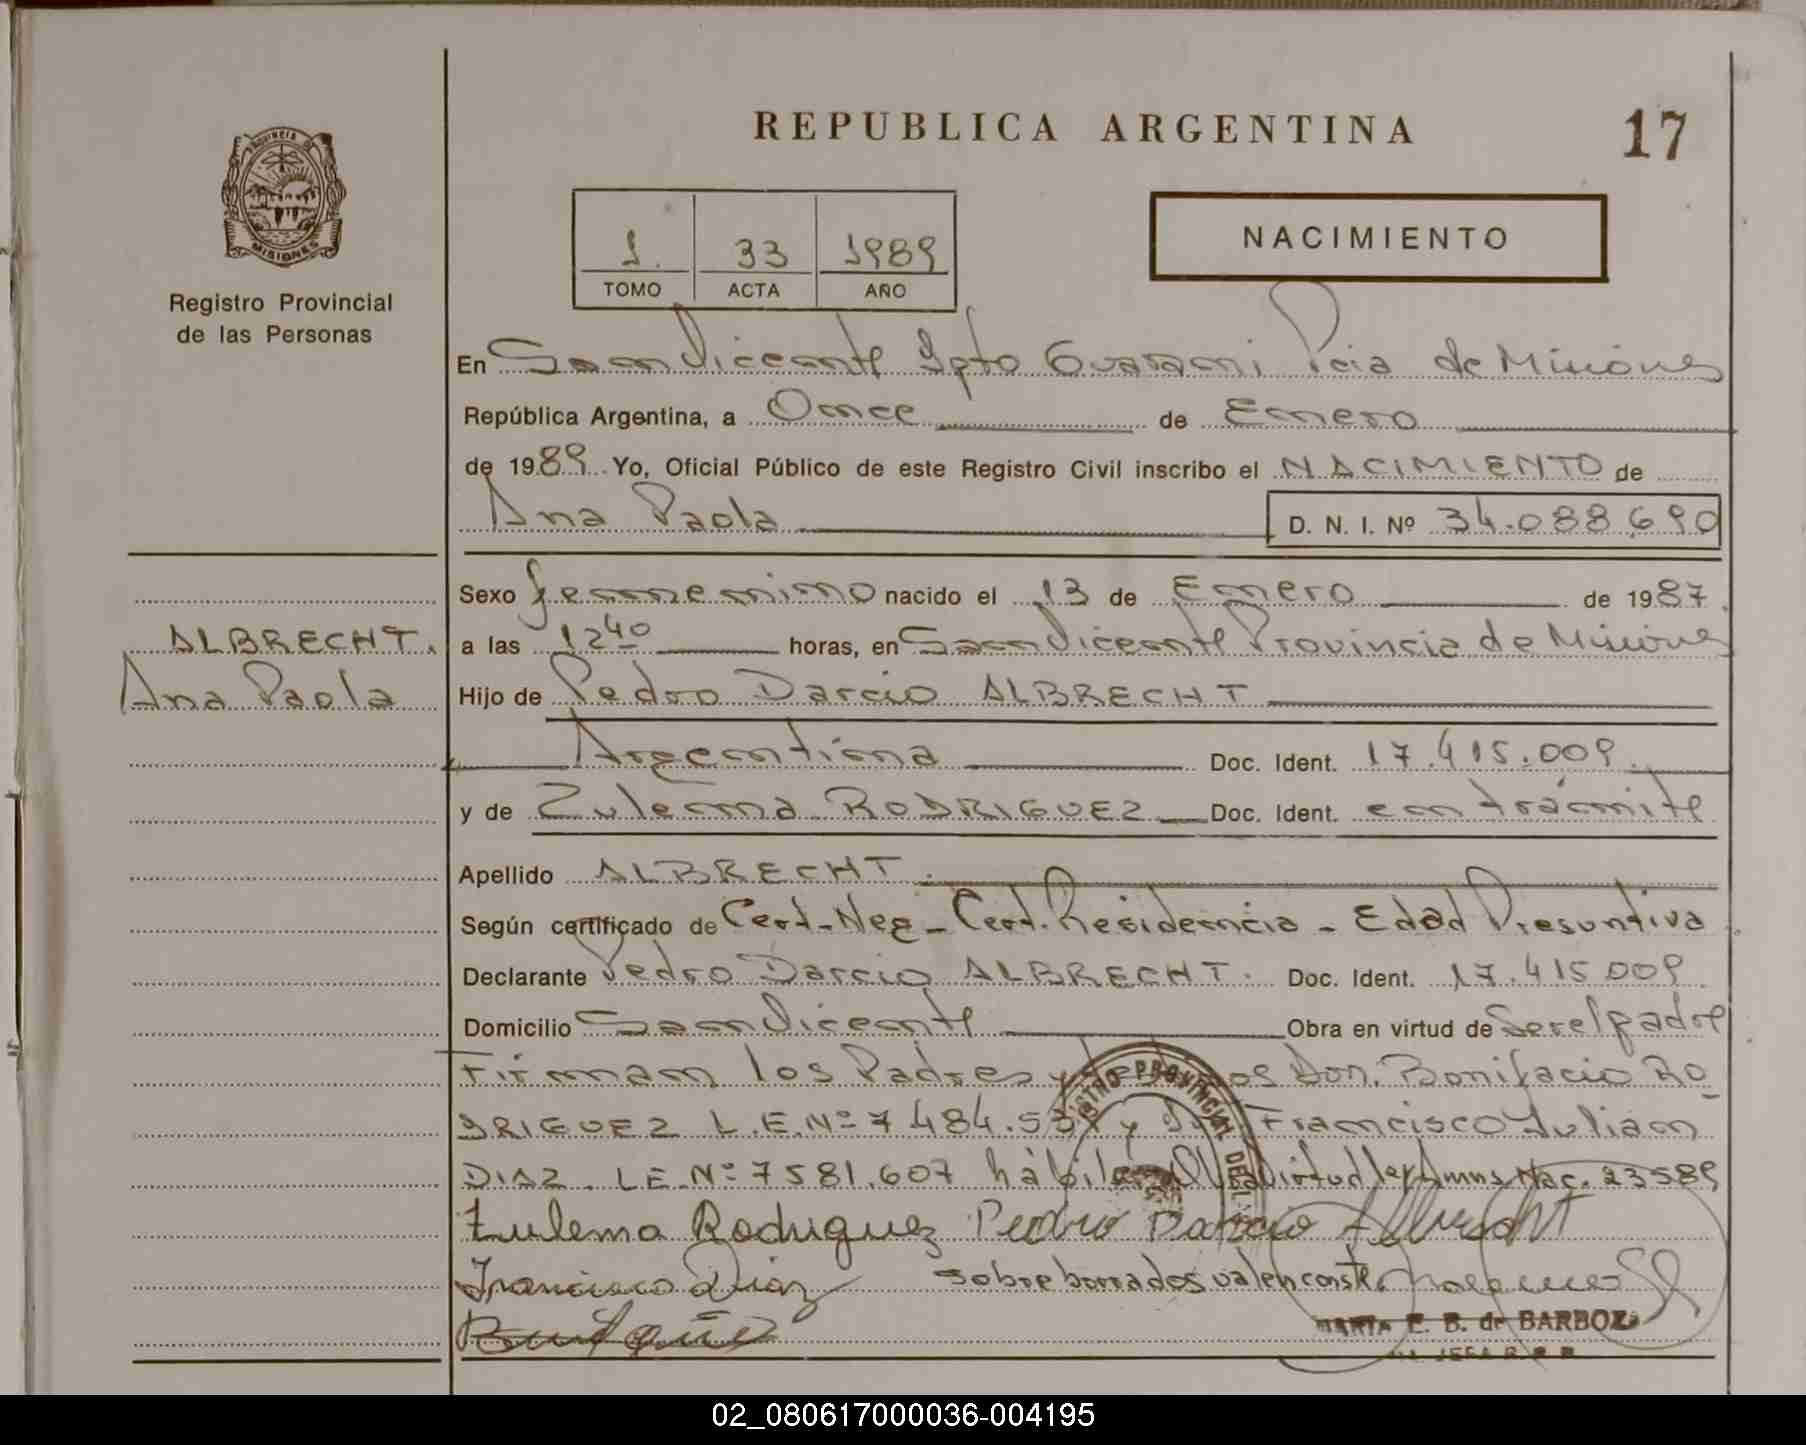 REPUBLICA ARGENTINA
17
PROVINCIA D
MISIONES
Registro Provincial
de las Personas
1. 33 1989
TOMO ACTA AÑO
NACIMIENTO
En San Vicente Dpto Guarani Pcia de Misiones
República Argentina, a Once de Enero
de 1989 Yo, Oficial Público de este Registro Civil inscribo el NACIMIENTO de
Ana Paola D. N. I. Nº 34.088.690
Sexo femenino nacido el 13 de Enero de 1987
ALBRECHT.
Ana Paola
a las 12 40 horas, en San Vicente Provincia de Misiones
Hijo de Pedro Darcio ALBRECHT
Argentina Doc. Ident. 17.415.009
y de Zulema RODRIGUEZ Doc. Ident. en trámite
Apellido ALBRECHT.
Según certificado de Cert-Neg- Cert. Residencia - Edad Presuntiva
Declarante Pedro Darcio ALBRECHT. Doc. Ident. 17.415.009
Domicilio San Vicente Obra en virtud de Ser el padre
Firman los Padres y Don. Bonifacio RO
DRIGUEZ L.E.Nº 7 484.53 y Francisco Julian
DIAZ. L.E.Nº 7581.607 hábiles virtud ley Nac. 23589
Zulema Rodriguez Pedro Darcio Albrecht
Francisco Diaz sobreborrados valen
MARIA E. B. de BARBOZA
JEFA R. P. P.
02_080617000036-004195